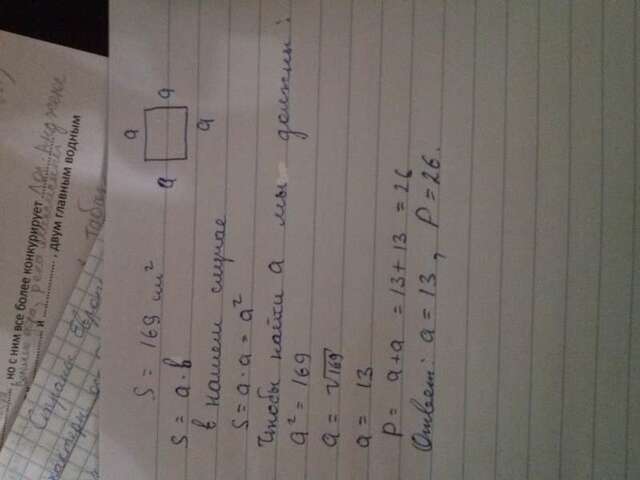 S = 169 см²
a
a
a
a
S = a · в
в нашем случае
S = a · a = a²
Чтобы найти a мы должны:
a² = 169
a = √169
a = 13
P = a + a = 13 + 13 = 26
Ответ: a = 13, P = 26.
, но с ним все более конкурирует
и
, двум главным водным
Страна